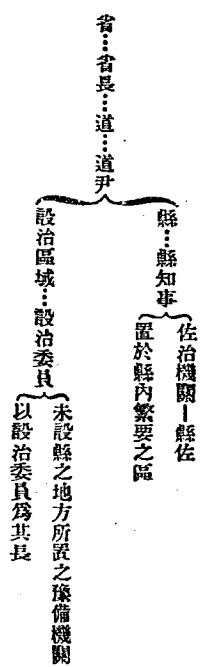 省…省長…道…道尹
縣…縣知事
佐治機關—縣佐
置於縣內繁要之區
設治區域…設治委員
未設縣之地方所置之豫備機關
以設治委員爲其長